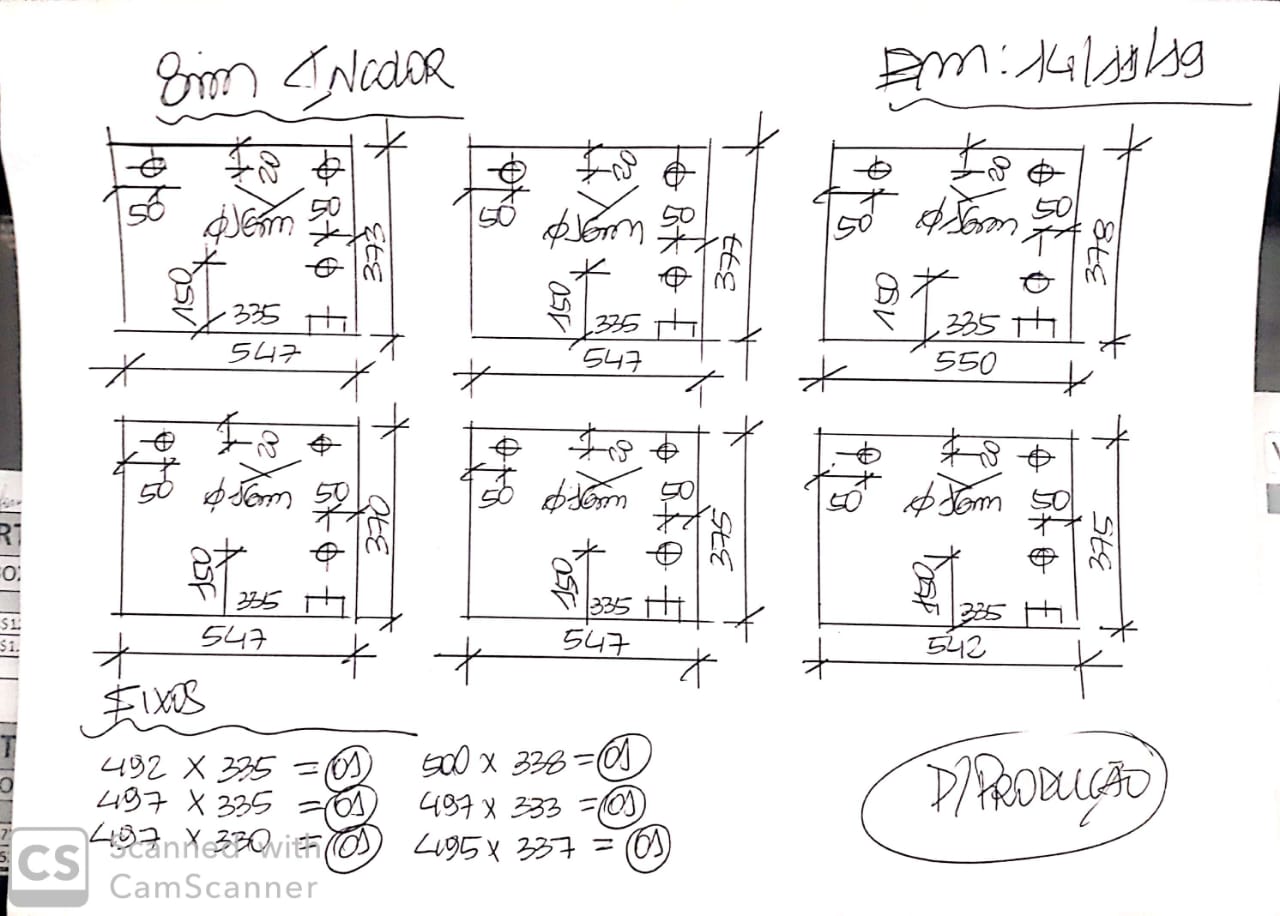 8mm INCOLOR
Em: 14/11/19
50 20 50 Ø16mm 373 150 335 547
50 20 50 Ø16mm 377 150 335 547
50 20 50 Ø16mm 378 150 335 550
50 20 50 Ø16mm 370 150 335 547
50 20 50 Ø16mm 375 150 335 547
50 20 50 Ø16mm 375 150 335 542
FIXOS
492 X 335 = 01
497 X 335 = 01
497 X 330 = 01
500 X 338 = 01
497 X 333 = 01
495 X 337 = 01
P/PRODUÇÃO
CS
Scanned with
CamScanner